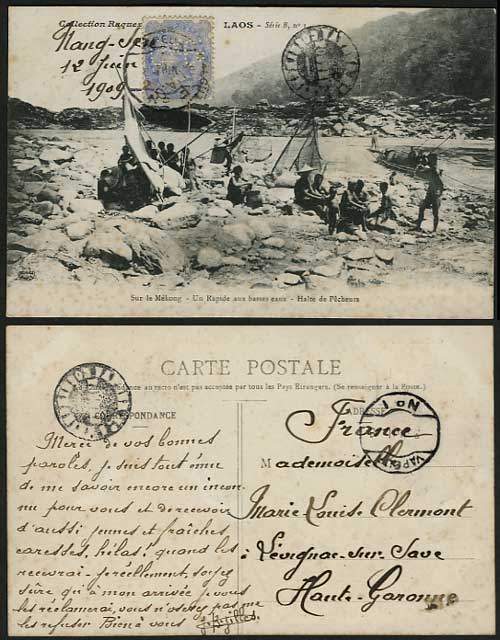 Collection Raquez
LAOS - Série B, nº 1
12 Juin
1909
Sur le Mékong - Un Rapide aux basses eaux - Halte de Pêcheurs
CARTE POSTALE
La Correspondance au recto n'est pas acceptée par tous les Pays Etrangers. (Se renseigner à la Poste.)
CORRESPONDANCE
ADRESSE
Merci de vos bonnes
paroles, je suis tout ému
de me savoir encore un incon
nu pour vous et de recevoir
d'aussi jeunes et fraîches
caresses, hélas! quand les
recevrai-je réellement, soyez
sûre qu'à mon arrivée je vous
les réclamerai, vous n'oserez pas me
les refuser Bien à vous
France
Mademoiselle
Marie-Louise Clermont
à Lévignac-sur-Save
Haute-Garonne
No 1